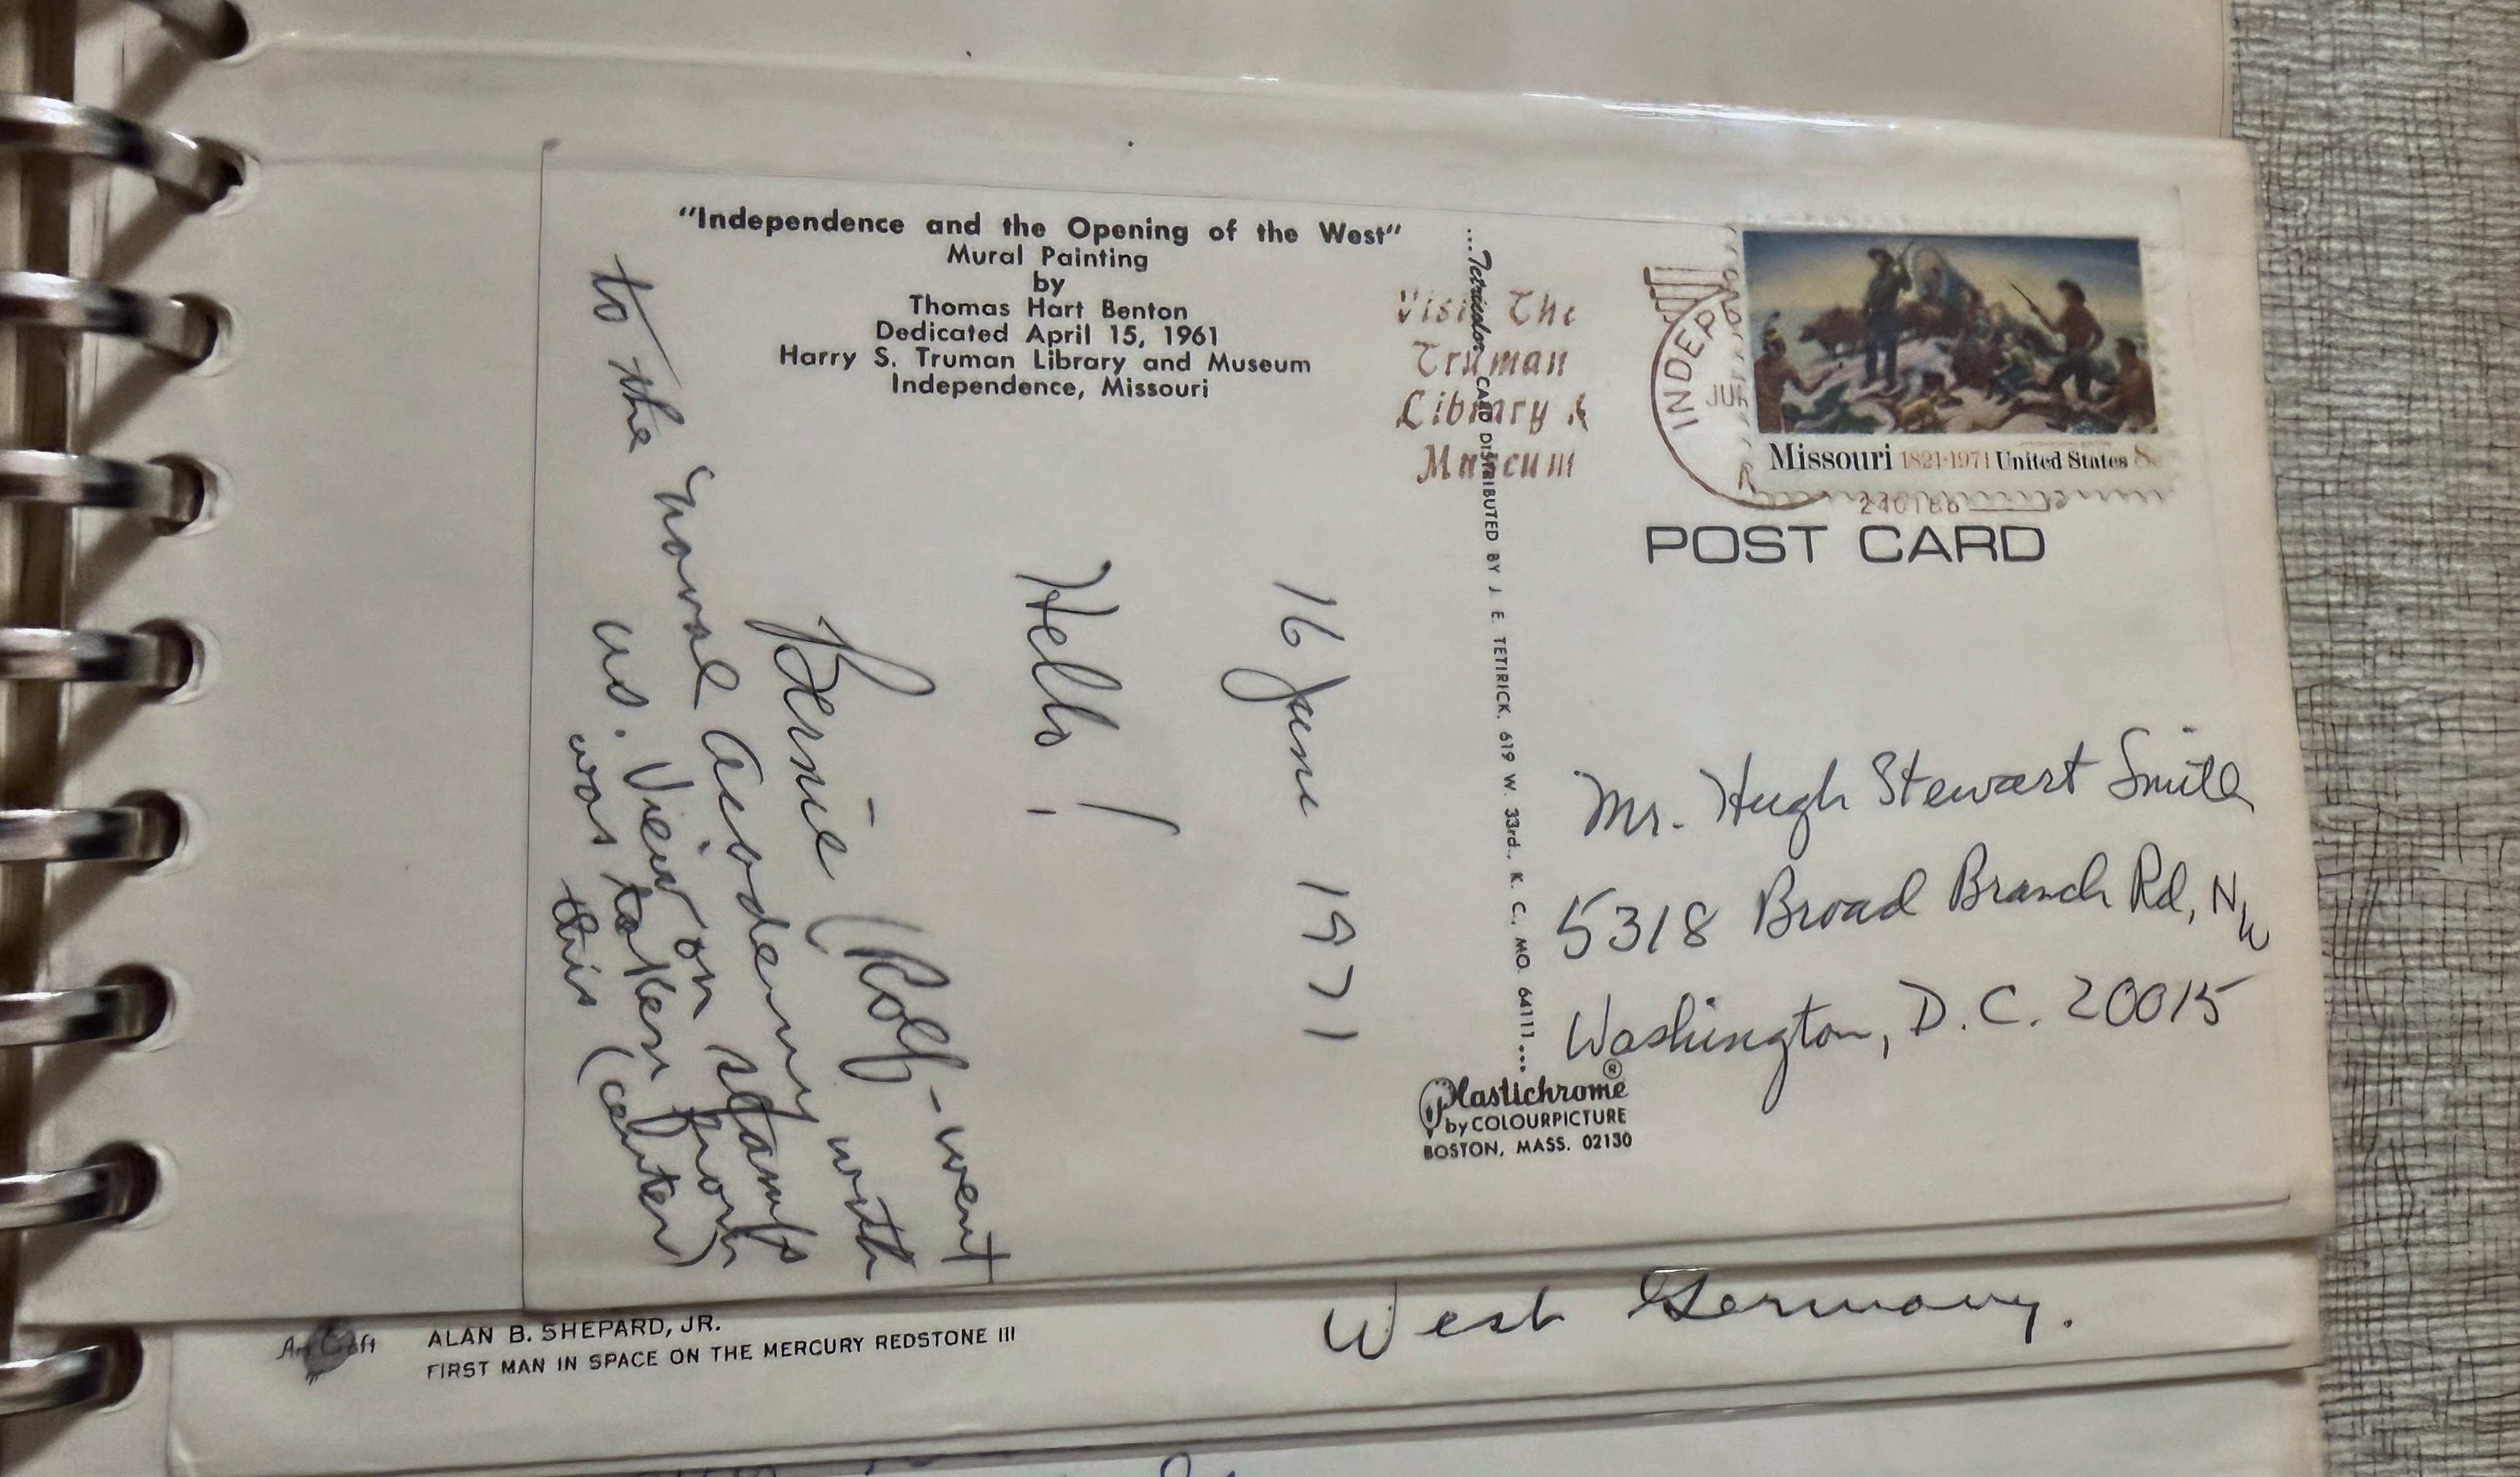 "Independence and the Opening of the West"
Mural Painting
by
Thomas Hart Benton
Dedicated April 15, 1961
Harry S. Truman Library and Museum
Independence, Missouri
16 June 1971
Hello!
Bernie (Rolf - went
to the Naval Academy with
us. View on stamps
was taken from
this (center)
...Tetricolor CARD DISTRIBUTED BY J. E. TETIRICK, 619 W. 33rd., K. C., MO. 64111...
Visit The
Truman
Library &
Museum
INDEP
Missouri 1821·1971 United States 8c
POST CARD
Mr. Hugh Stewart Smith
5318 Broad Branch Rd, NW
Washington, D.C. 20015
Plastichrome®
by COLOURPICTURE
BOSTON, MASS. 02130
West Germany.
Art Craft
ALAN B. SHEPARD, JR.
FIRST MAN IN SPACE ON THE MERCURY REDSTONE III